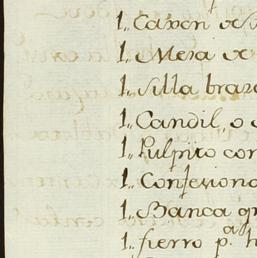 1,, Caxon
1,, Mesa
1,, silla braz
1,, Candil, o
1,, Pulpito con
1,, Confesiona
1,, Banca
1,, fierro p.a h